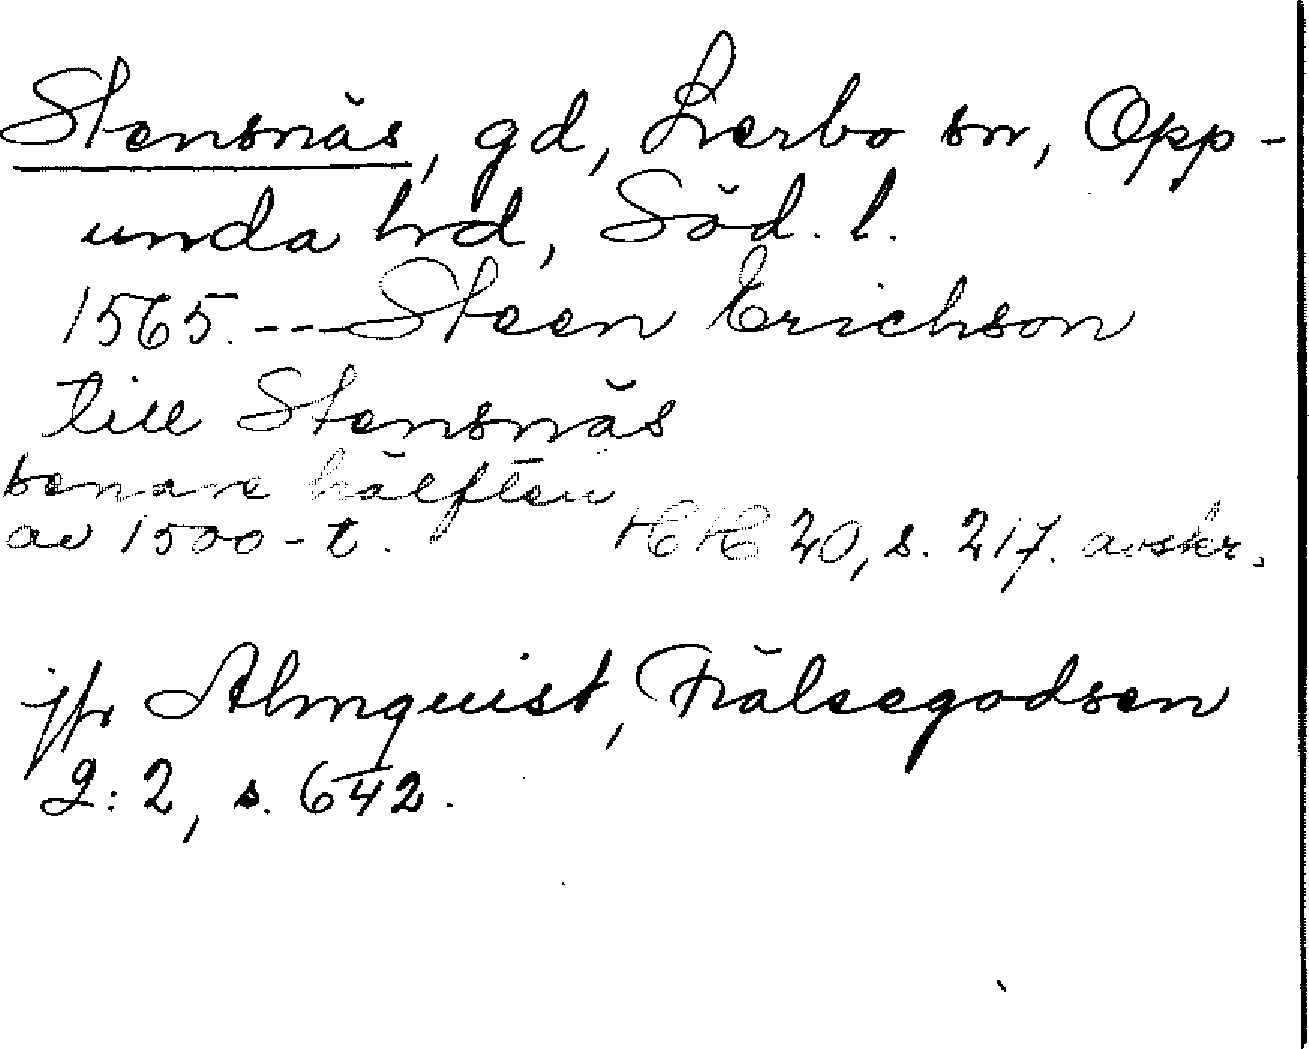 Stensnäs, gd, Lerbo sn, Opp-
unda hd, Söd. l.
1565. --- Steen Erichson
till Stensnäs
senare hälften
av 1500-t. HH 20, s. 217. avskr.
jfr Almquist, Frälsegodsen
2:2, s. 642.